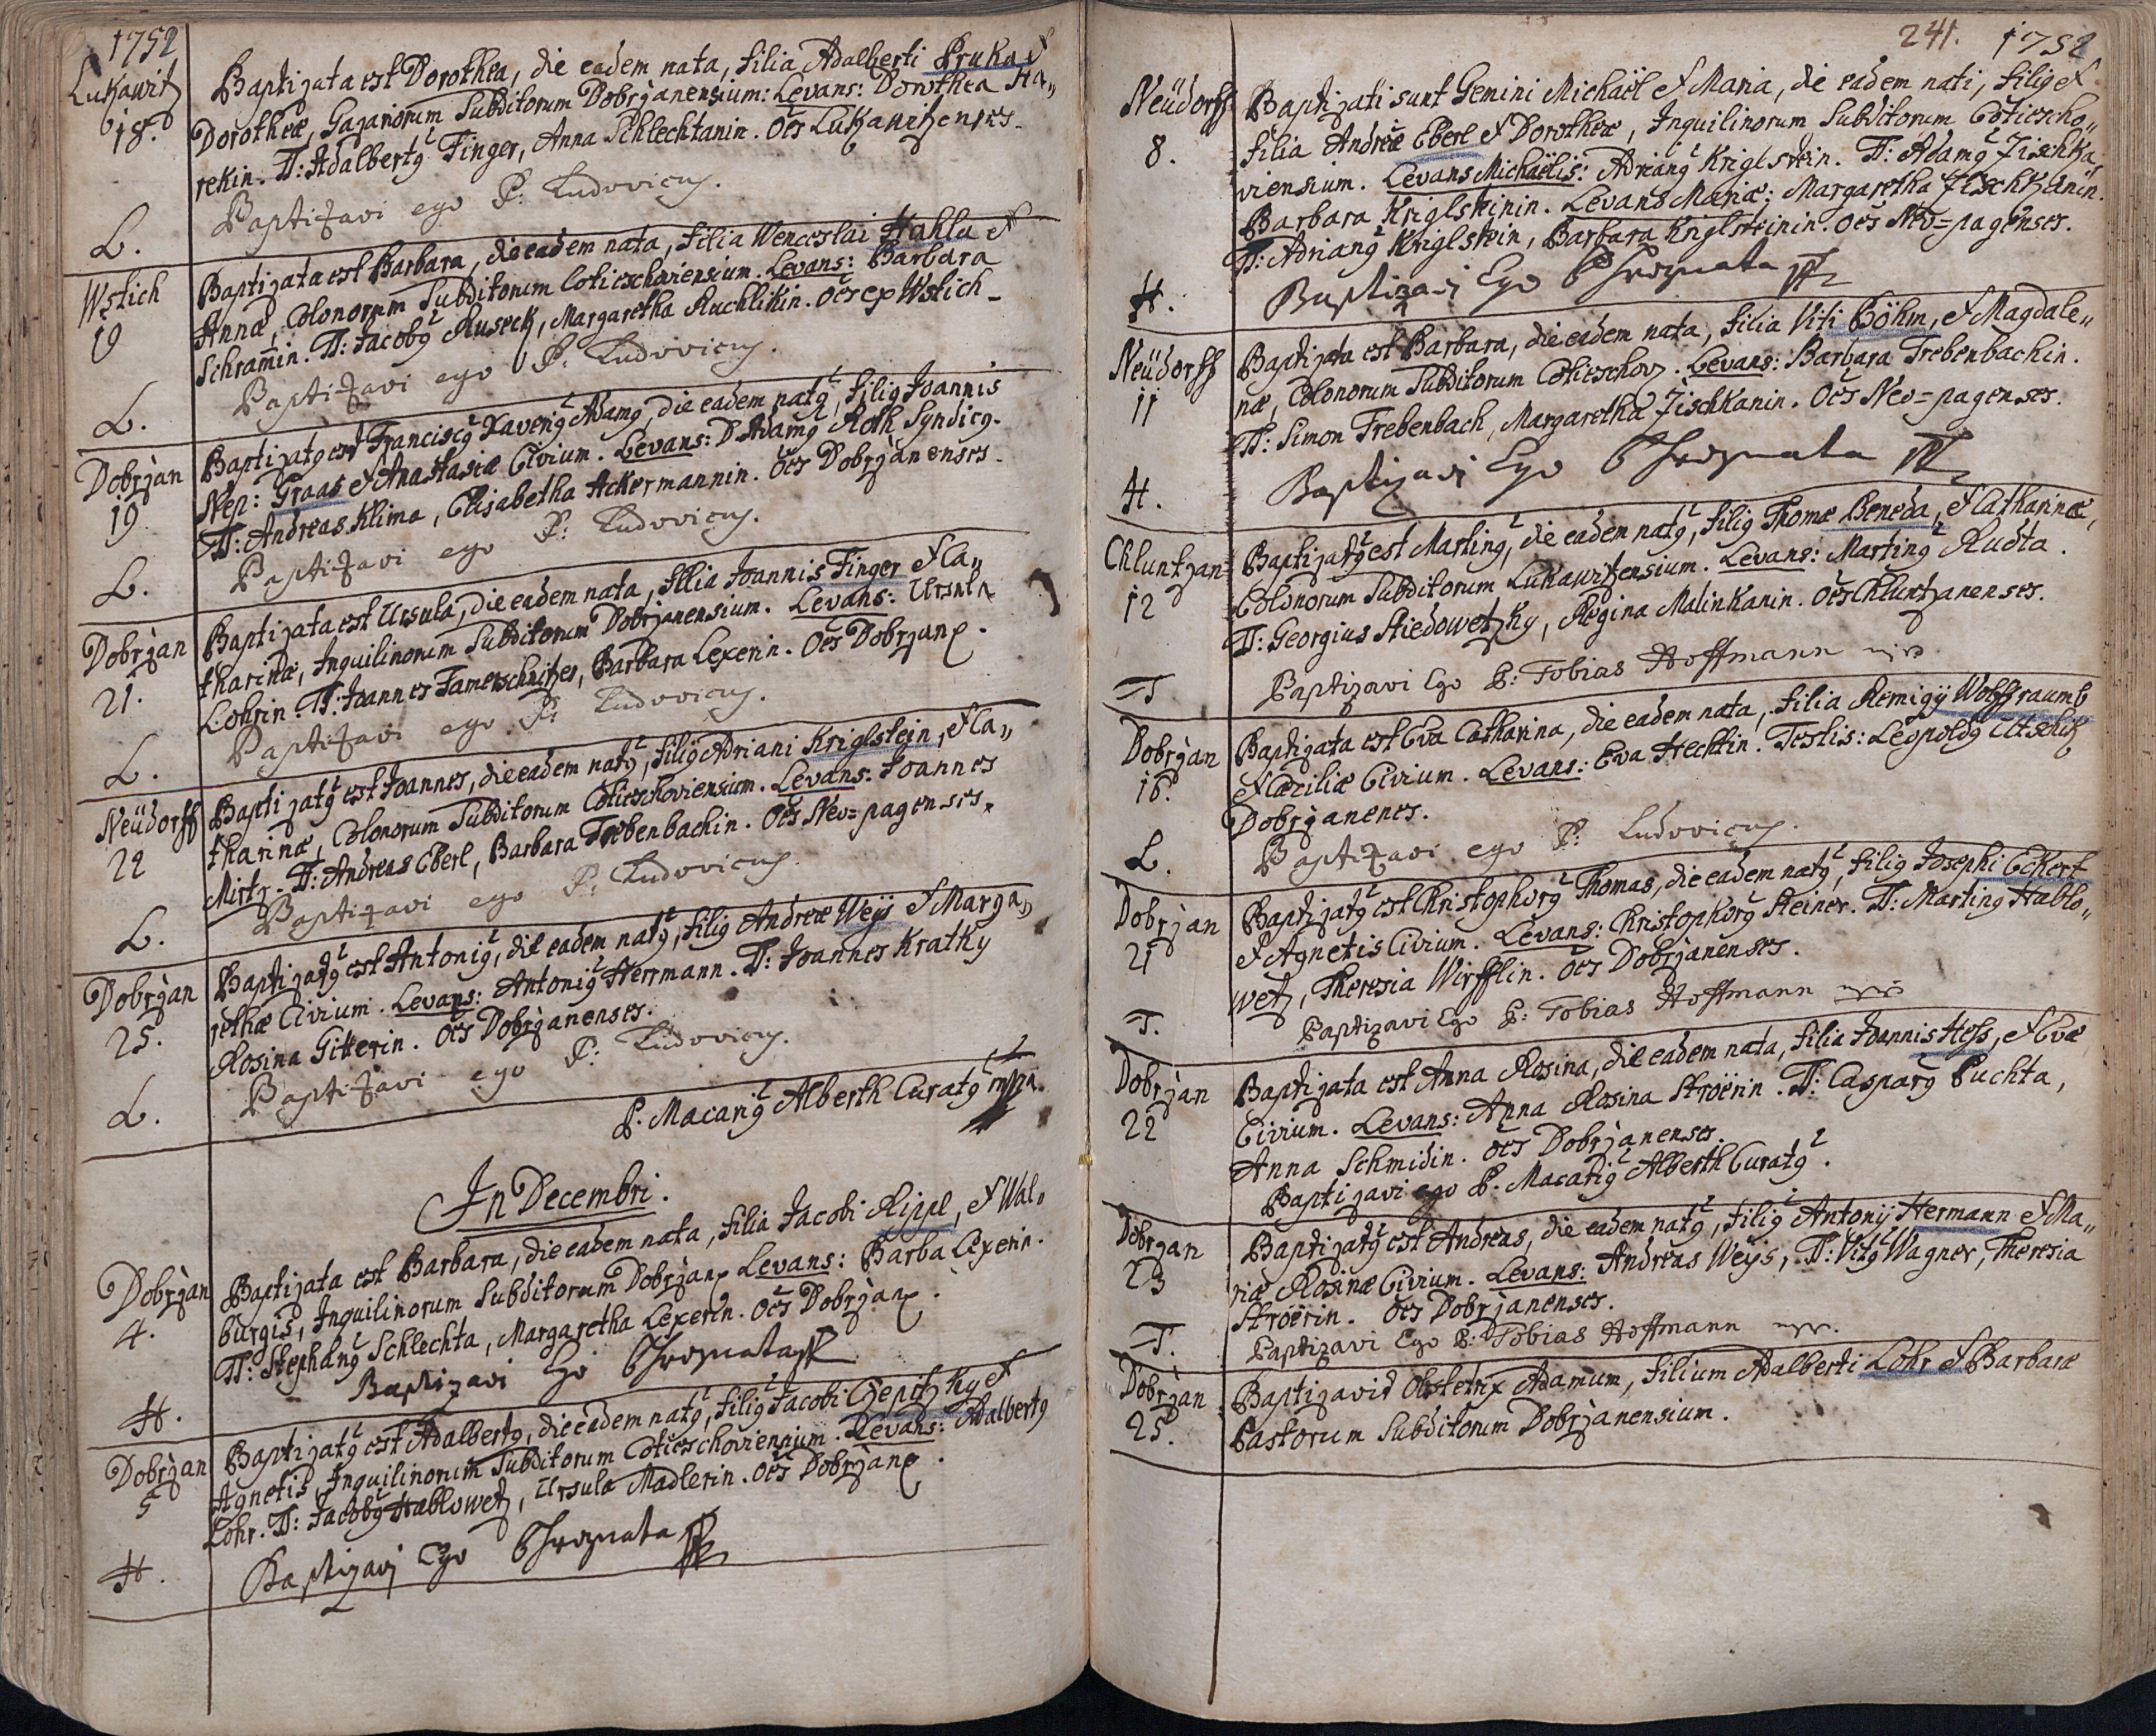 1752
Lukawitz
18.
Baptizata est Dorothea, die eadem nata, filia Adalberti Pruka &
Dorotheæ, Gazariorum Subditorum Dobrzanensium: Levans: Dorothea Ha„
rekin. TT: Adalbertꝰ Finger, Anna Schlechtanin. Oēs Lukawitzenses.
Baptizavi ego P: Ludovicus.
L.
Wstich
19
Baptizata est Barbara, die eadem nata, filia Wenceslai Hahlu &
Annæ, Colonorum Subditorum Cotieschoviensium. Levans: Barbara
Schram̄in. TT: Jacobꝰ Ruseck, Margaretha Ruchlikin. Oēs ex Wstich.
Baptizavi ego P: Ludovicus.
L.
Dobrzan
19
Baptizatꝰ est Franciscꝰ Xaveriꝰ Adamꝰ, die eadem natꝰ, filiꝰ Joannis
Nep: Graas & Anastasiæ Civium. Levans: D. Adamꝰ Roth Syndicꝰ.
TT: Andreas Klima, Elisabetha Ackermannin. Oēs Dobrzanenses.
Baptizavi ego P: Ludovicus.
L.
Dobrzan
21.
Baptizata est Ursula, die eadem nata, filia Joannis Finger & Ca„
tharinæ, Inquilinorum Subditorum Dobrzanensium. Levans: Ursula
Lohrin. TT: Joannes Famerschnitzes, Barbara Lexerin. Oēs Dobrzanꝛ.
Baptizavi ego P: Ludovicus.
L.
Neüdorff
22
Baptizatꝰ est Joannes, die eadem natꝰ, filiꝰ Adriani Kriglstein, & Ca„
tharinæ, Colonorum Subditorum Cotieschoviensium. Levans: Joannes
Mirtz. TT: Andreas Eberl, Barbara Trebenbachin. Oēs Neo=pagenses.
Baptizavi ego P: Ludovicus.
L.
Dobrzan
25.
Baptizatꝰ est Antoniꝰ, die eadem natꝰ, filiꝰ Andreæ Weys & Marga„
rethæ Civium. Levans: Antoniꝰ Herrmann. TT: Joannes Kratky
Rosina Gitterin. Oēs Dobrzanenses.
Baptizavi ego P: Ludovicus.
L.
P. Macariꝰ Alberth Curatꝰ mpp.
In Decembri.
Dobrzan
4.
Baptizata est Barbara, die eadem nata, filia Jacobi Rippl, & Wal„
burgis, Inquilinorum Subditorum Dobrzanꝛ Levans: Barba Lexerin.
TT: Stephanꝰ Schlechta, Margaretha Lexerin. Oēs Dobrzanꝛ.
Baptizavi Ego P Hroznata
H.
Dobrzan
5
Baptizatꝰ est Adalbertꝰ, die eadem natꝰ, filiꝰ Jacobi Czepitzky &
Agnetis, Inquilinorum Subditorum Cotieschoviennium. Levans: Adalbertꝰ
Lohr. TT: Jacobꝰ Hablowetz, Ursula Madlerin. Oēs Dobrzanꝛ.
Baptizavi Ego P Hroznata
H.
241. 1752
Neüdorff
8.
Baptizati sunt Gemini Michaël & Maria, die eadem nati, filiꝰ &
filia Andreæ Eberl & Dorotheæ, Inquilinorum Subditorum Cotiescho„
viensium. Levans Michaëlis: Adrianꝰ Kriglstein. TT: Adamꝰ Zischka,
Barbara Kriglsteinin. Levans Mariæ: Margaretha Zischkanin.
TT: Adrianꝰ Kriglstein, Barbara Kriglsteinin. Oēs Neo=pagenses.
Baptizavi Ego P Hroznata
H.
Neüdorff
11
Baptizata est Barbara, die eadem nata, filia Viti Böhm, & Magdale„
næ, Colonorum Subditorum Cotieschovꝛ. Levans: Barbara Trebenbachin.
TT: Simon Trebenbach, Margaretha Zischkanin. Oēs Neo=pagenses.
Baptizavi Ego P Hroznata
H.
Chluntzan
12
Baptizatꝰ est Martinꝰ, die eadem natꝰ, filiꝰ Thomæ Beneda, & Catharinæ,
Colonorum Subditorum Lukawitzensium. Levans: Martinꝰ Rudta.
TT: Georgius Stiedowetzky, Regina Malinkanin. Oēs Chluntzanenses.
Baptizavi Ego P: Tobias Hoffmann mpp.
T
Dobrzan
16.
Baptizata est Eva Catharina, die eadem nata, filia Remigij Wolffraumb
& Cæciliæ Civium. Levans: Eva Hechtin. Testis: Leopoldꝰ Utschitz
Dobrzanenes.
Baptizavi ego P: Ludovicus.
L.
Dobrzan
21
Baptizatꝰ est Christophorꝰ Thomas, die eadem natꝰ, filiꝰ Josephi Eckert
& Agnetis Civium. Levans: Christophorꝰ Steiner. TT: Martinꝰ Hablo„
wetz, Theresia Wirfflin. Oēs Dobrzanenses.
Baptizavi Ego P: Tobias Hoffmann mpp
T.
Dobrzan
22
Baptizata est Anna Rosina, die eadem nata, filia Joannis Hess, & Evæ
Civium. Levans: Anna Rosina Ströerin. TT: Casparꝰ Puchta,
Anna Schmidin. Oēs Dobrzanenses.
Baptizavi ego P: Macariꝰ Alberth Curatꝰ.
Dobrzan
23
Baptizatꝰ est Andreas, die eadem natꝰ, filiꝰ Antonij Hermann & Ma„
riæ Rosinæ Civium. Levans: Andreas Weys, TT: Vitꝰ Wagner, Theresia
Ströerin. Oēs Dobrzanenses.
Baptizavi Ego P: Tobias Hoffmann mpp.
T.
Dobrzan
25.
Baptizavit Obstetrix Adamum, filium Adalberti Lohr & Barbaræ
Pastorum Subditorum Dobrzanensium.